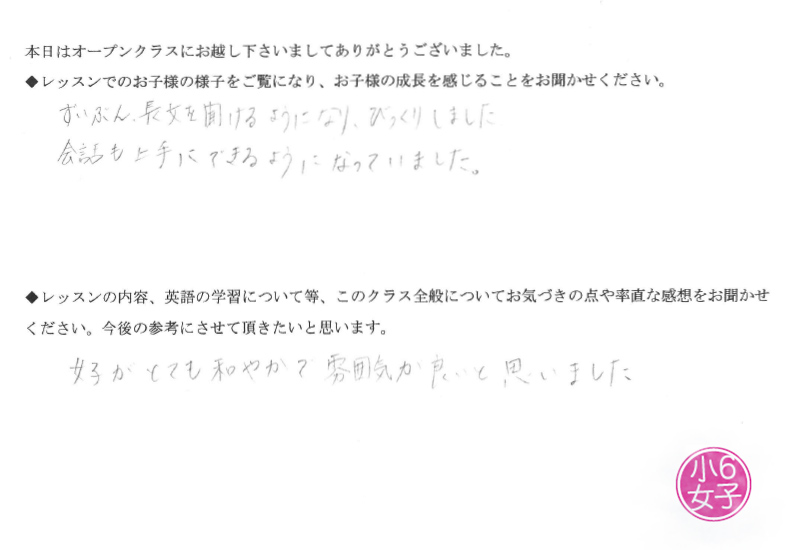 本日はオープンクラスにお越し下さいましてありがとうございました。
◆レッスンでのお子様の様子をご覧になり、お子様の成長を感じることをお聞かせください。
ずいぶん、長文を聞けるようになり、びっくりしました
会話も上手にできるようになっていました。
◆レッスンの内容、英語の学習について等、このクラス全般についてお気づきの点や率直な感想をお聞かせ
ください。今後の参考にさせて頂きたいと思います。
がとても和やかで雰囲気が良いと思いました
小6
女子